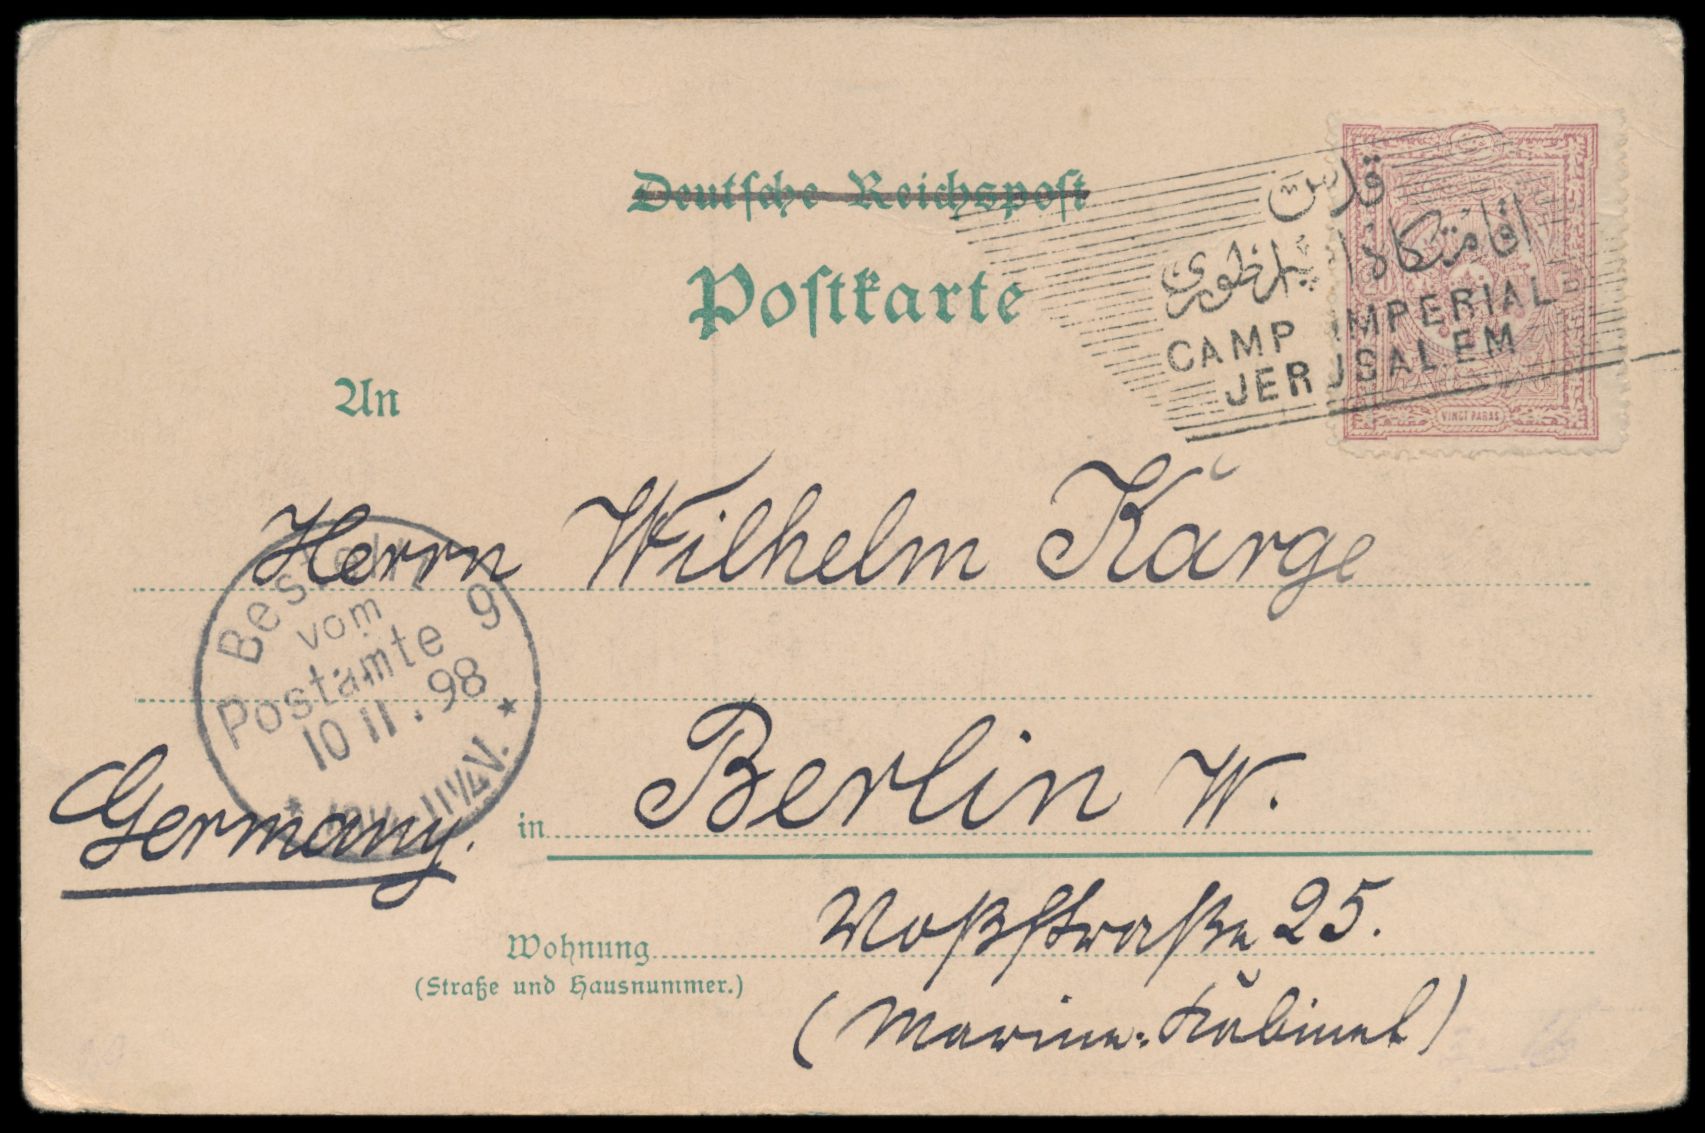 Deutsche Reichspost
Postkarte
قدس
اقامتكاه ايمپراطورى
CAMP IMPERIAL
JERUSALEM
VINGT PARAS
An
Herrn Wilhelm Karge
Bestellt
vom
Postamte 9
10 11.98
11¼N.
Germany.
in Berlin W.
Wohnung Voßstraße 25.
(Straße und Hausnummer.)
(Marine-Kabinet)